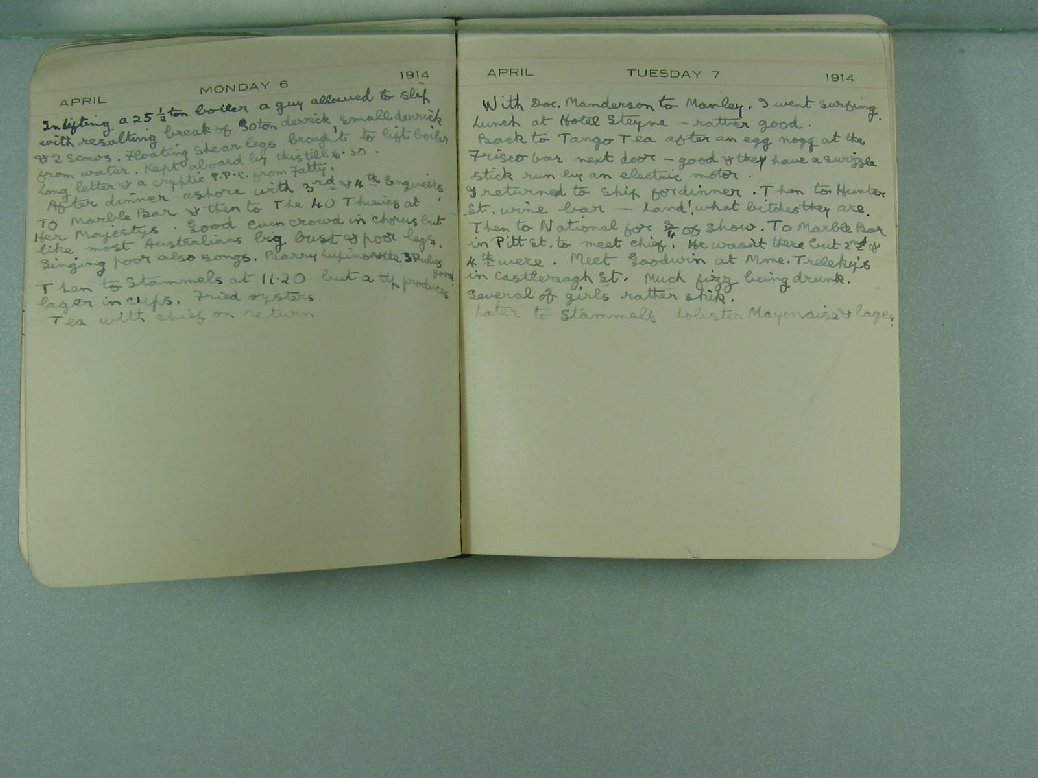 APRIL MONDAY 6 1914
In lifting a 25 ½ ton boiler a guy allowed to slip
with resulting break of 30 ton derrick small derrick
& 2 scows. Floating shear legs brought to lift boiler
from water. Kept aboard by this till 6.30.
Long letter & a cryptic P.P.C. from Fatty.
After dinner ashore with 3rd & 4th Engineers
To Marble Bar & then to The 40 Thieves at
Her Majestys. Good Even crowd in chorus but
like most Australians big bust & poor legs.
Singing poor also songs. Barry Lupino the 3
good
Then to Stammels at 11.20 but a tip produces
lager in cups. Fried oysters
Tea with chief on return
APRIL TUESDAY 7 1914
With Doc. Manderson to Manley. I went surfing.
Lunch at Hotel Steyne - rather good.
Back to Tango Tea after an egg nogg at the
Frisco bar next door - good & they have a swizzle
stick run by an electric motor.
& returned to ship for dinner. Then to Hunter
St. wine bar - Land! what bitches they are.
Then to National for ¾ of show. To Marble Bar
in Pitt St. to meet chief. He wasn't there but 2nd &
4th were. Meet Goodwin at Mme.
in Castlereagh St. Much fizz being drunk.
Several of girls rather shik.
Later to Stammels Lobster Mayonaise & lager